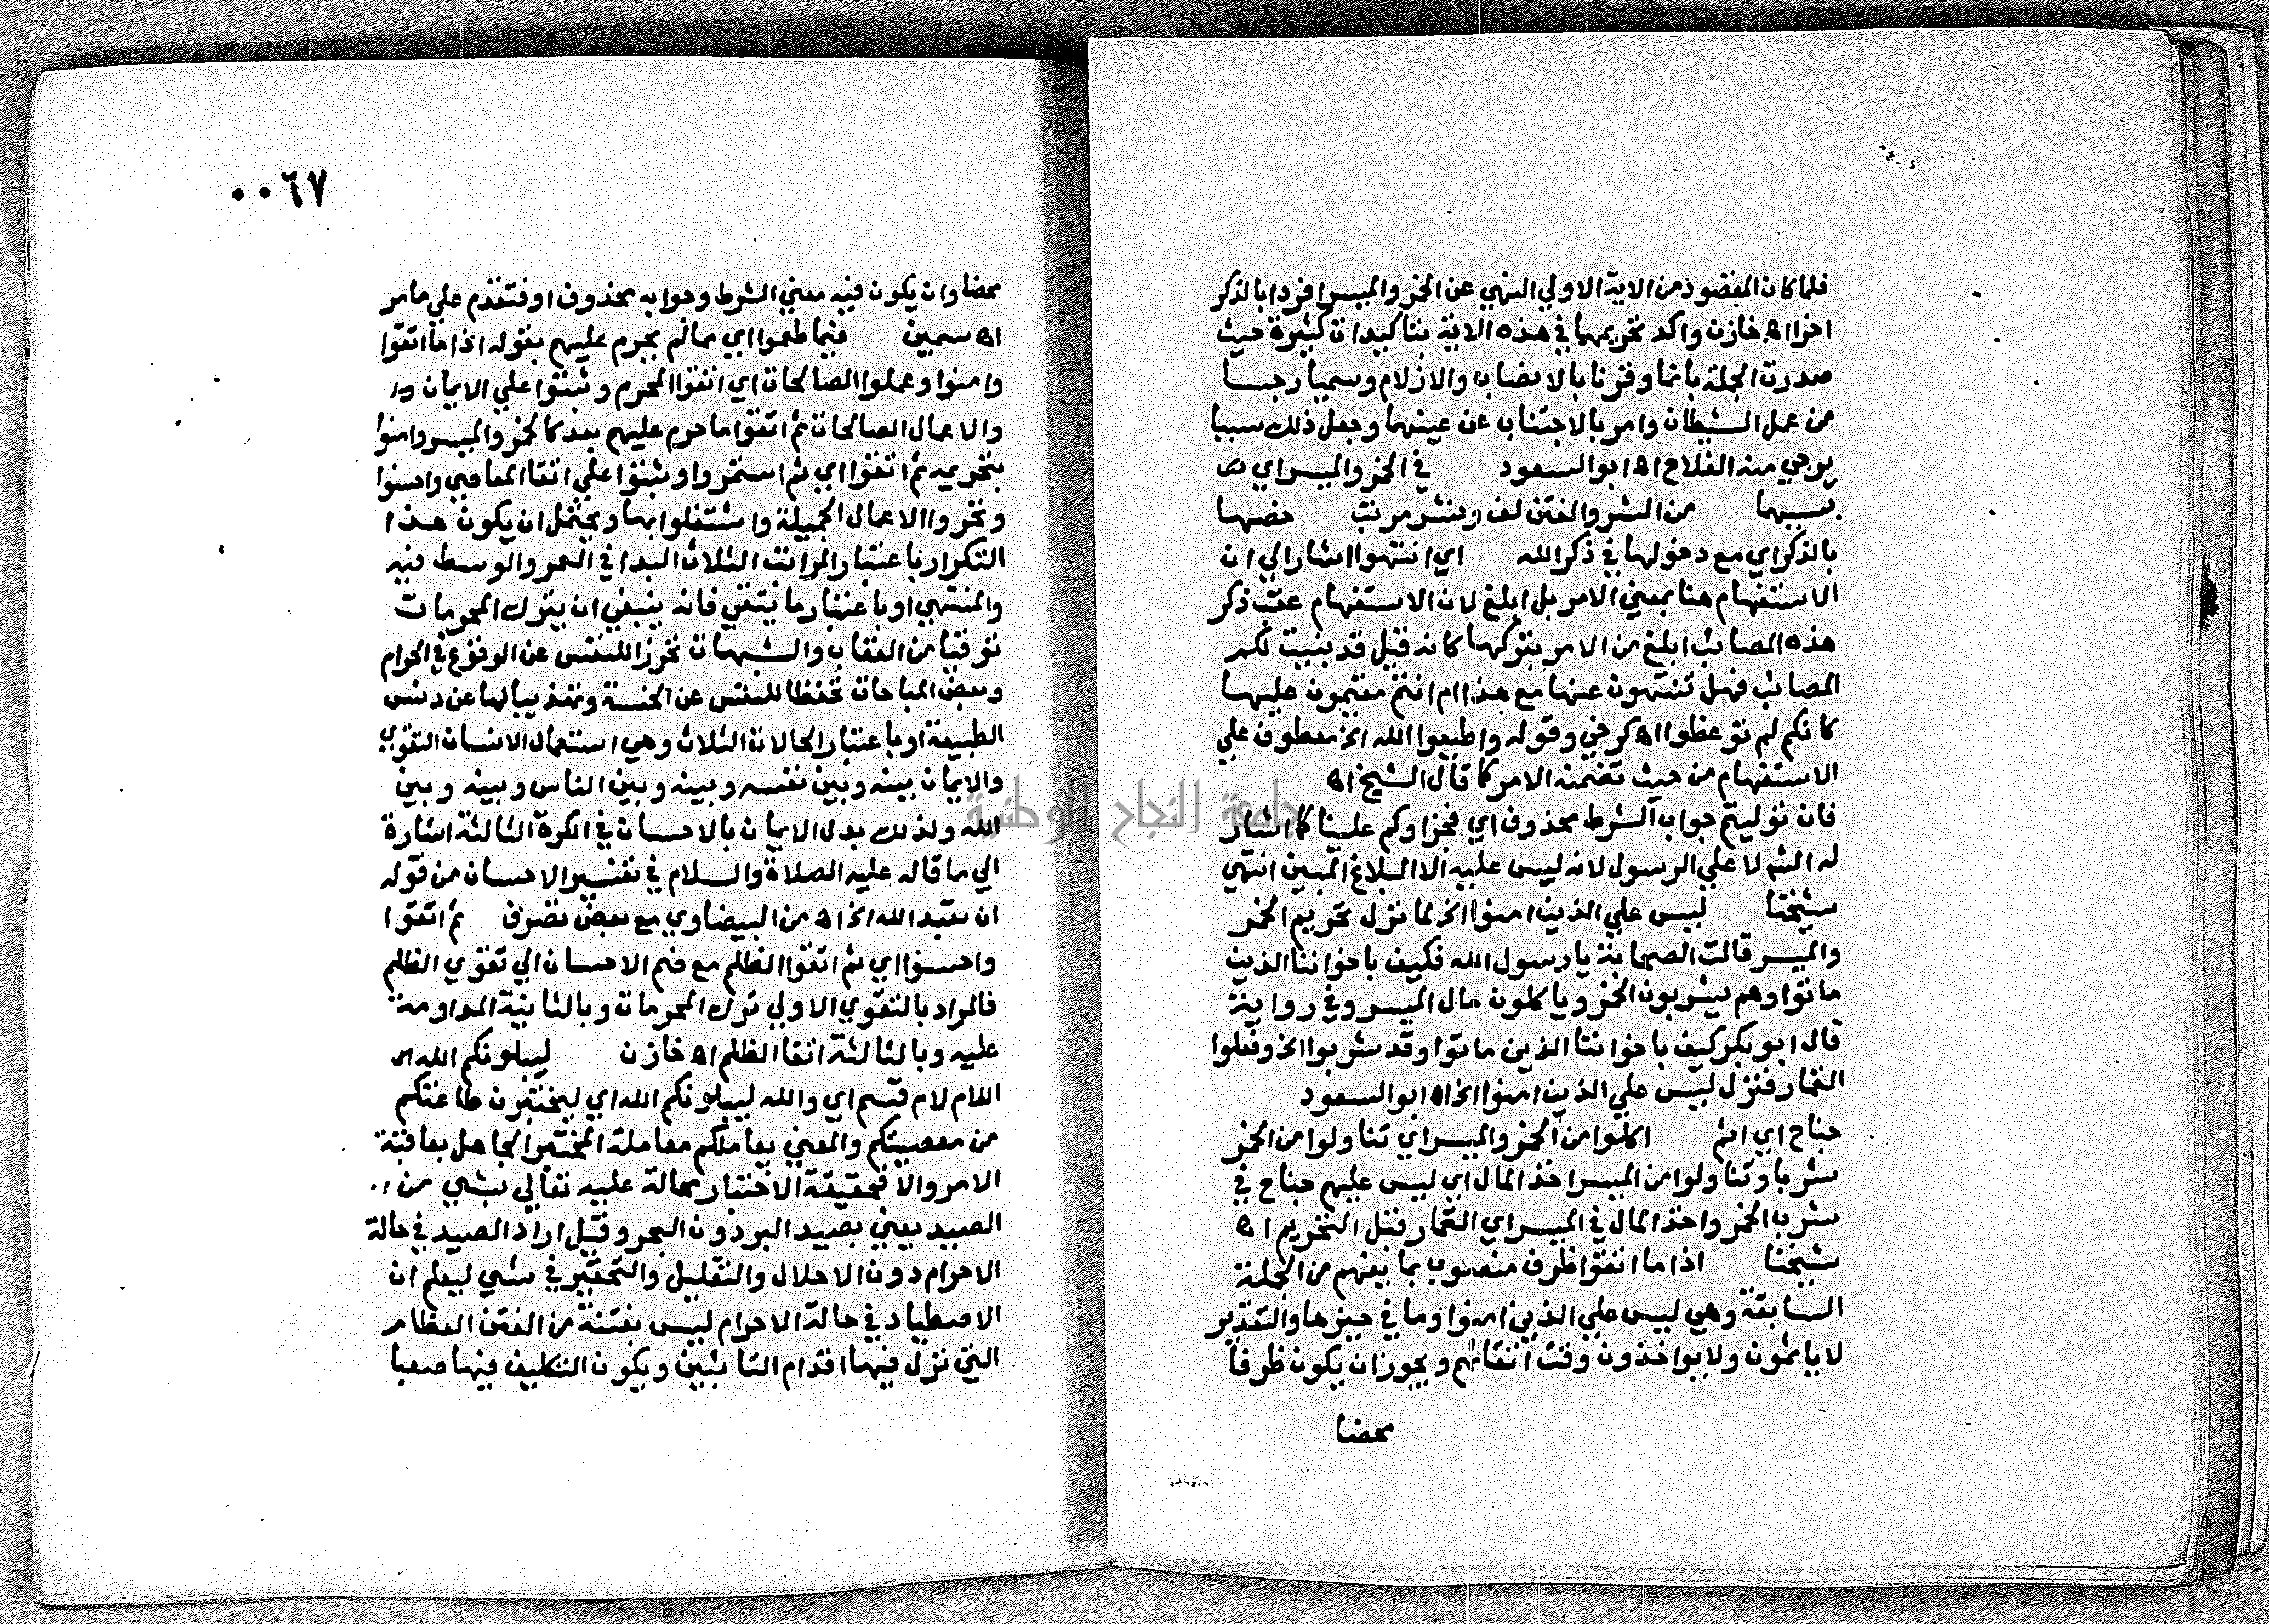 فلما كان المقصود من الاية الاولي النهي عن الخمر والميسر افردا بالذكر
اخرا اه خازن واكد تحريمهما في هذه الاية بتاكيدات كثيرة حيث
صدرت الجملة بانما وقرنا بالانصاب والازلام وسميا رجسا
من عمل الشيطان وامر بالاجتناب عن عينهما وجعل ذلك سببا
يرجي منه الفلاح اه ابو السعود في الخمر والميسر اي
بسببهما من الشر والفتن لف ونشر مرتب خصهما
بالذكر اي مع دخولهما في ذكر الله اي انتهوا اشار الي ان
الاستفهام هنا بمعني الامر بل ابلغ لان الاستفهام عقب ذكر
هذه المصائب ابلغ من الامر بتركها كانه قيل قد بنيت لكم
المصائب فهل تنتهون عنها مع هذا ام انتم مقيمون عليها
كانكم لم توعظوا اه كرخي وقوله واطيعوا الله الخ معطوف علي
الاستفهام من حيث تضمنه الامر كما قال الشيخ اه
فان توليتم جواب الشرط محذوف اي فجزاوكم علينا كما اشار
له الشم لا علي الرسول لانه ليس عليه الا البلاغ المبين انتهي
شيخنا ليس علي الذين امنوا الخ لما نزل تحريم الخمر
والميسر قالت الصحابة يا رسول الله فكيف باخواننا الذين
ماتوا وهم يشربون الخمر وياكلون مال الميسر وفي رواية
قال ابو بكر كيف باخواننا الذين ماتوا وقد شربوا الخ وفعلوا
القمار فنزل ليس علي الذين امنوا الخ اه ابو السعود
جناح اي اثم اكلوا من الخمر والميسر اي تناولوا من الخمر
شربا وتناولوا من الميسر اخذ المال اي ليس عليهم جناح في
شرب الخمر واخذ المال في الميسر اي القمار قبل التحريم اه
شيخنا اذا ما اتقوا ظرف منصوب بما يفهم من الجملة
السابقة وهي ليس علي الذين امنوا وما في حيزها والتقدير
لا ياثمون ولا يواخذون وقت اتقائهم ويجوز ان يكون ظرفا
محضا
٠٠٦٧
محضا وان يكون فيه معني الشرط وجوابه محذوف او فتقدم علي ما مر
اه سمين فيما طعموا اي مما لم يحرم عليهم بقوله اذا ما اتقوا
وامنوا وعملوا الصالحات اي اتقوا المحرم وثبتوا علي الايمان
والاعمال الصالحات ثم اتقوا ما حرم عليهم بعد كالخمر والميسر وامنوا
بتحريمه ثم اتقوا اي ثم استمروا وثبتوا علي اتقا المعاصي واحسنوا
وتحروا الاعمال الجميلة واشتغلوا بها ويحتمل ان يكون هذا
التكرار باعتبار المراتب الثلاث المبدا في العمر والوسط فيه
والمنتهي او باعتبار ما يتقي فانه ينبغي ان يترك المحرمات
توقيا من العقاب والشبهات تحرزا للنفس عن الوقوع في الحرام
وبعض المباحات تحفظا للنفس عن الخسة وتهذيبا لها عن دنس
الطبيعة او باعتبار الحالات الثلاث وهي استعمال الانسان التقوي
والايمان بينه وبين نفسه وبينه وبين الناس وبينه وبين
الله ولذلك بدل الايمان بالاحسان في الكرة الثالثة اشارة
الي ما قاله عليه الصلاة والسلام في تفسير الاحسان من قوله
ان تعبد الله الخ اه من البيضاوي مع بعض تصرف ثم اتقوا
واحسنوا اي ثم اتقوا الظلم مع ضم الاحسان الي تقوي الظلم
فالمراد بالتقوي الاولي ترك المحرمات وبالثانية المداومة
عليه وبالثالثة اتقا الظلم اه خازن ليبلونكم الله
اللام لام قسم اي والله ليبلونكم الله اي ليختبرن طاعتكم
من معصيتكم والمعني يعاملكم معاملة المختبر الجاهل بعاقبة
الامر والا فحقيقة الاختبار محالة عليه تعالي بشي من
الصيد يعني بصيد البر دون البحر وقيل اراد الصيد في حالة
الاحرام دون الاحلال والتقليل والتحقير في شي ليعلم ان
الاصطياد في حالة الاحرام ليس بفتنة من الفتن العظام
التي تزل فيها اقدام الثابتين ويكون التكليف فيها صعبا
جامعة النجاح الوطنية